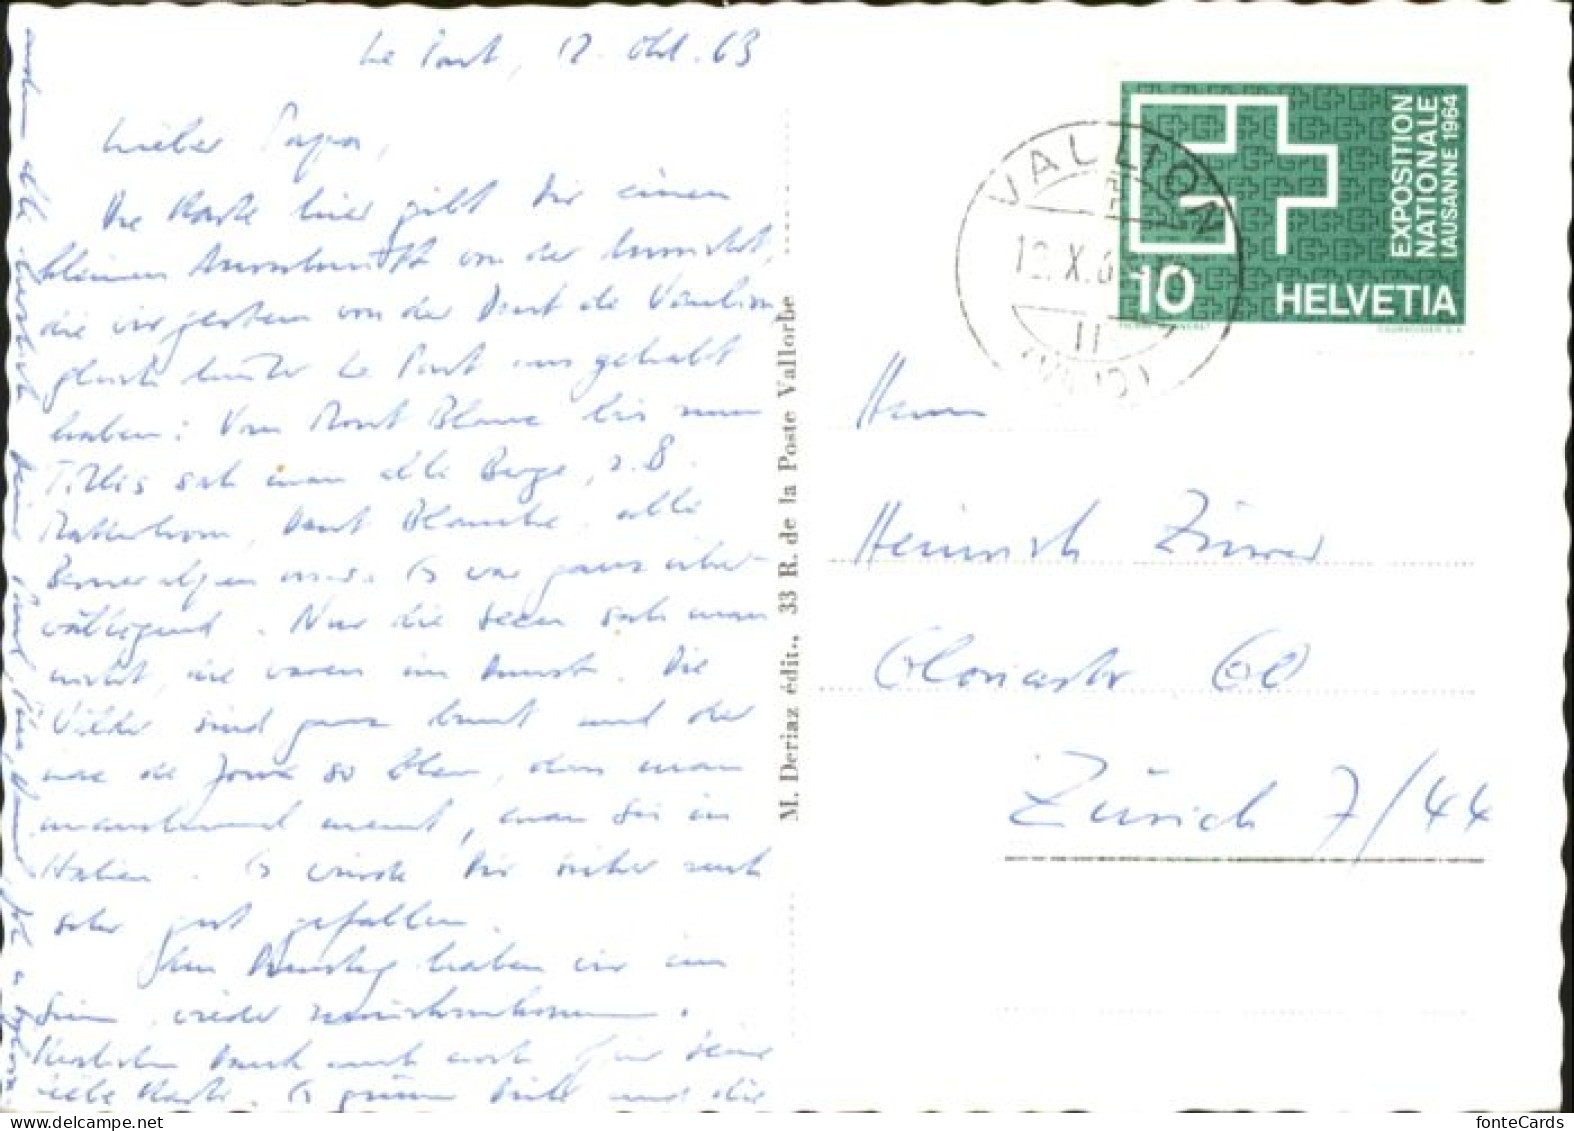 Le Pont, 12. Okt. 63
Lieber Papa,
Die Karte hier gibt Dir einen
kleinen Ausschnitt von der Aussicht,
die wir gestern von der Dent de Vaulion,
gleich hinter Le Pont aus gehabt
haben: Vom Mont Blanc bis zum
Titlis sah man alle Berge, z.B.
Matterhorn, Dent Blanche, alle
Berneralpen usw. Es war ganz über-
wältigend. Nur die Seen sah man
nicht, sie waren im Dunst. Die
Wälder sind ganz bunt und der
Lac de Joux so blau, dass man
manchmal meint, man sei in
Italien. Es würde Dir sicher auch
sehr gut gefallen.
Am Dienstag haben wir im
Sinn, wieder zurückzukommen.
Herzlichen Dank auch noch für Deine
liebe Karte. Es grüssen Dich und die
andern alle herzlich
VALLION
12.X.6
11
EXPOSITION
NATIONALE
LAUSANNE 1964
10
HELVETIA
COURVOISIER S.A.
M. Deriaz édit., 33 R. de la Poste Vallorbe
Herrn
Heinrich
Gloriastr 60
Zürich 7/44
fonteCards